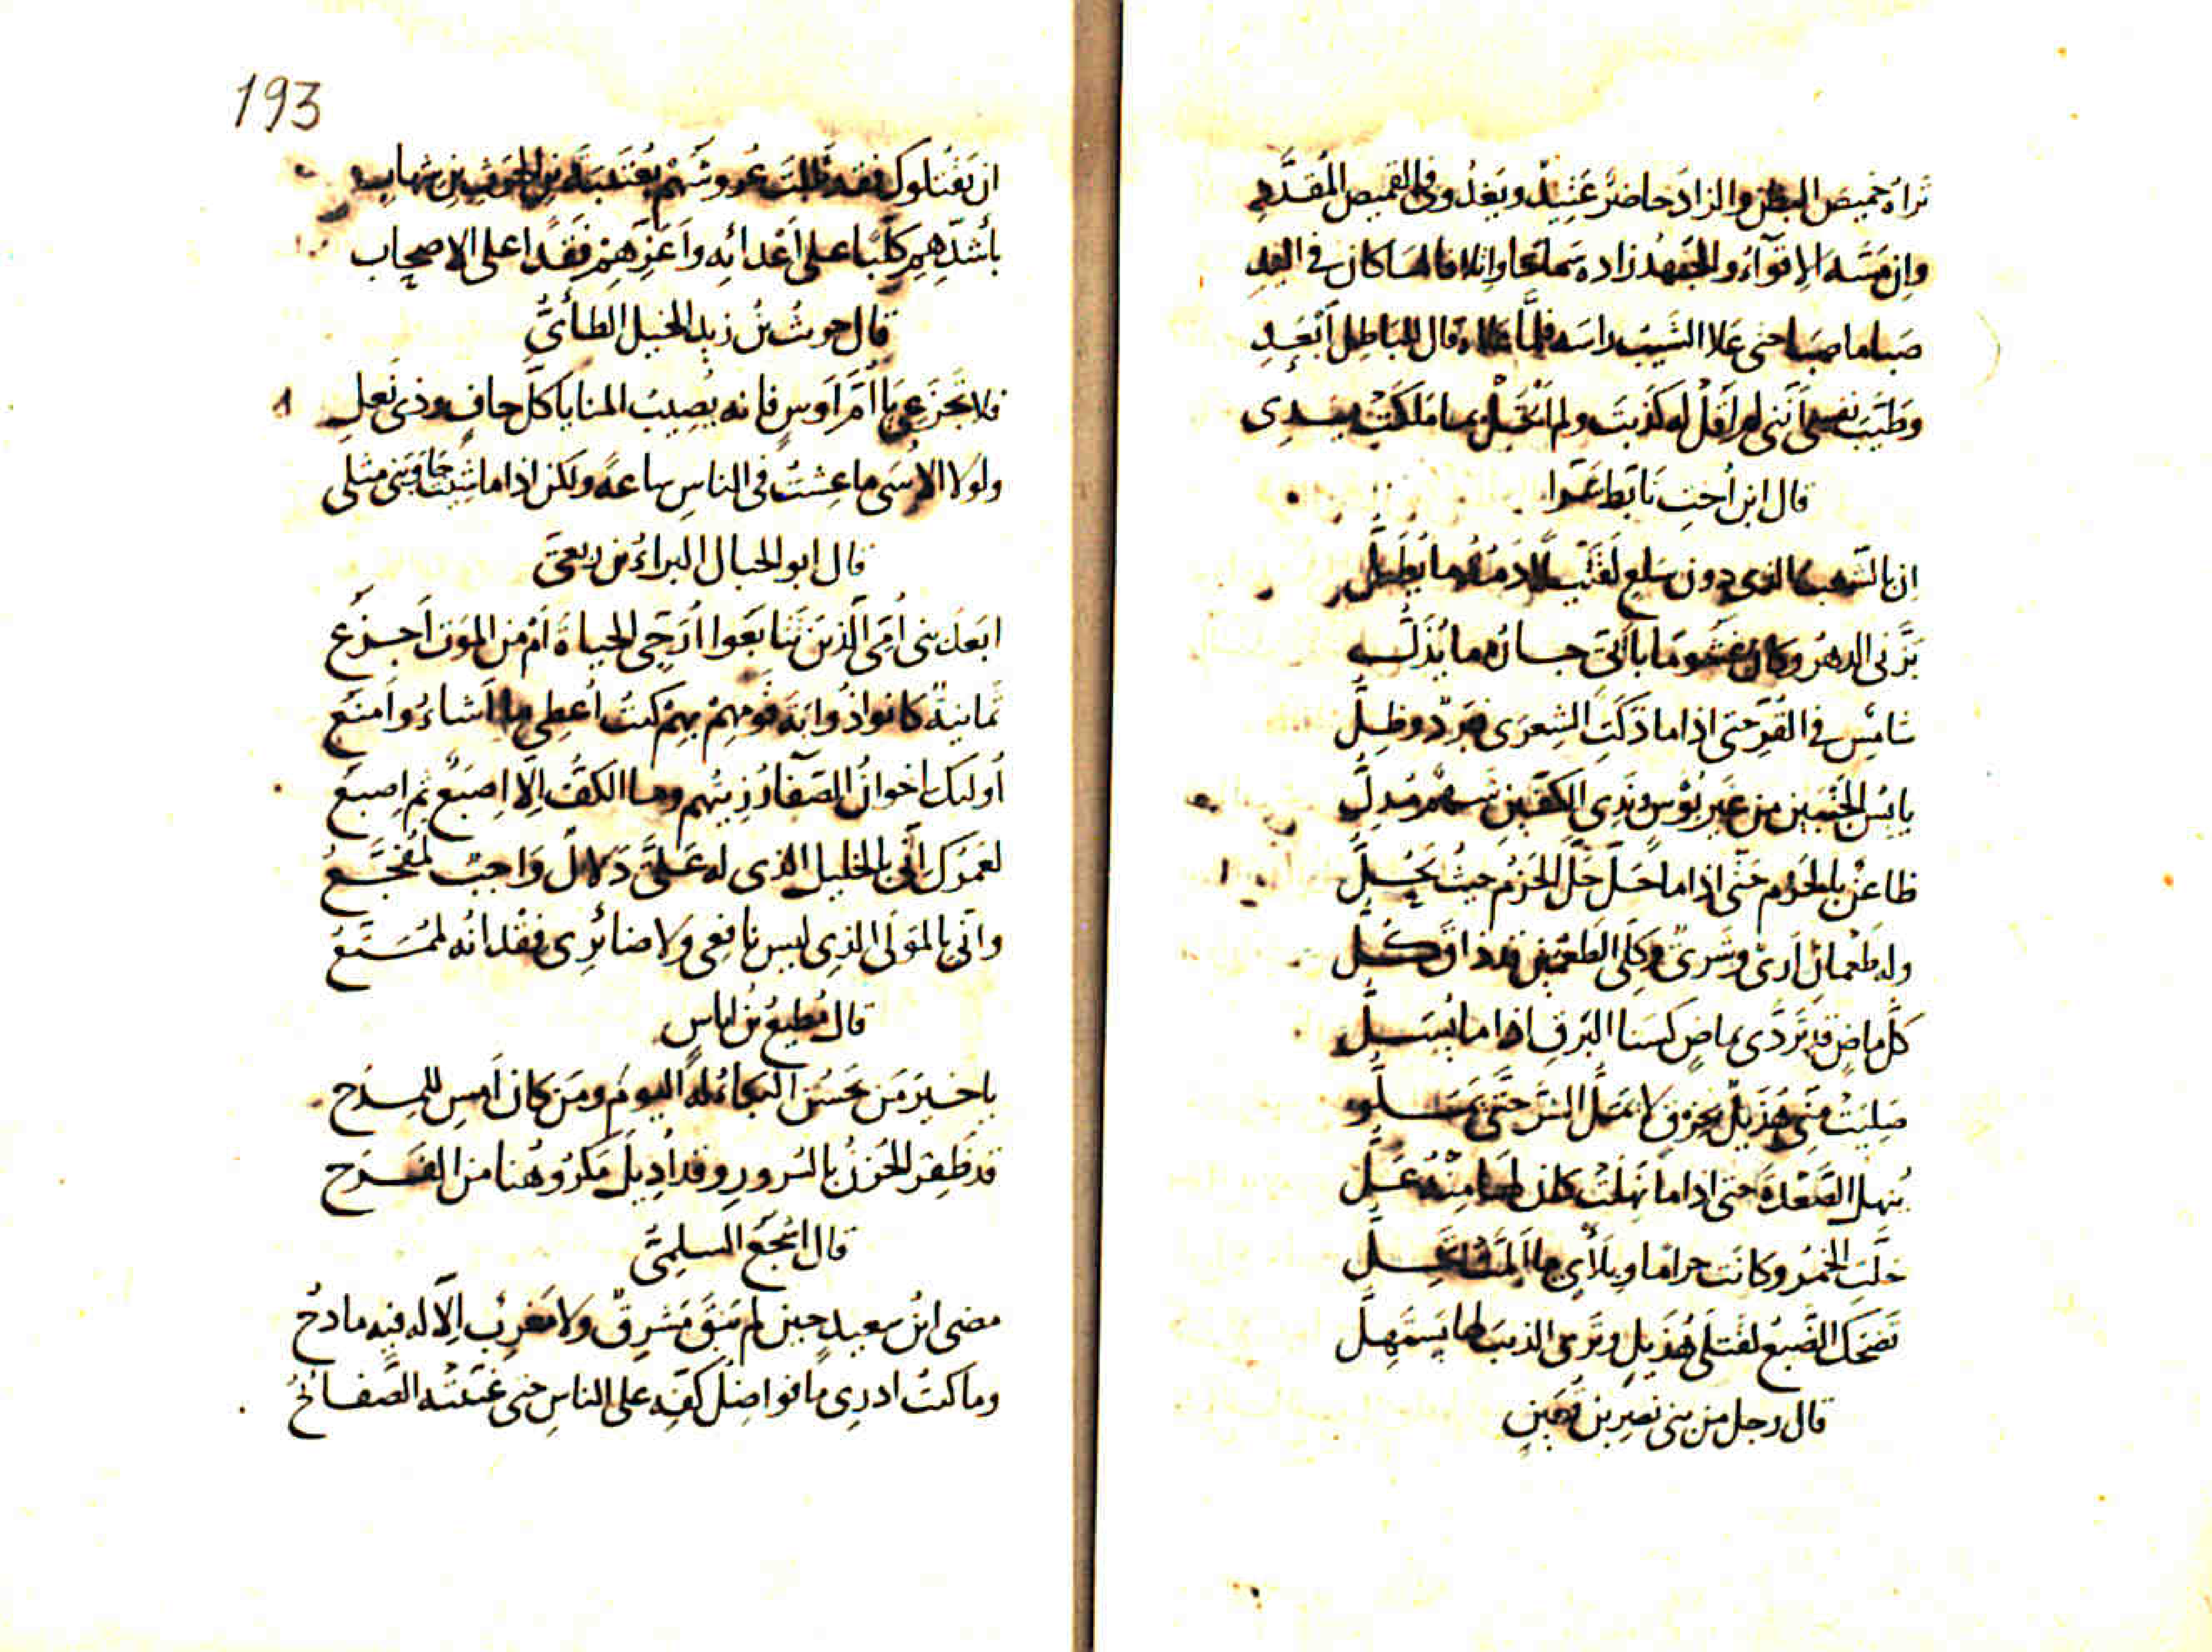 تَراهُ خميصَ البطنِ والزادُ حاضرٌ عَتِيدٌ ويَغدُو فى القميص المُقدَّدِ
وإن مَسَّهُ الإقوآءُ والجَهدُ زاده سماحًا واتلافا لما كان فى اليدِ
صَبا ما صَبا حتى عَلا الشَيبُ راسَه فلمَّا علاه قال للباطِل اَبْعَدِ
وطَيَّبَ نفسى اَنَّنى لم اَقُلْ له كَذَبتَ ولم اَبْخَلْ بما مَلكَتْ يدِى
قال ابن اُختِ تَابَّط شرّا
ان بالشِعب الذى دون سَلعٍ لَقَتيلًا دَمُهُ ما يُطَلُّ
بَزَّنى الدهرُ وكان غَشُومًا بأَبِىٍّ جارُهُ ما يُذَلُّ
شامِسٌ فى القُرِّ حتى اذا ما ذَكَتِ الشِعرَى فبَردٌ وظِلُّ
يابِسُ الجَنْبَينِ من غَير بُؤسٍ ونَدِى الكَفَّينِ شَهمٌ مُدِلُّ
ظاعنٌ بالحَزم حَتّى اذا ما حَلَّ حَلَّ الحَزمُ حيثُ يَحُلُّ
وله طَعْمانِ اَرىٌ وشَرىٌ وكِلَى الطَعْمَينِ قد ذاقَ كُلُّ
كلُّ ماضٍ قد تَردَّى بماضٍ كَسَنا البَرقِ اذا ما يُسَلُّ
صَلِيَتْ مِنّى هُذَيلٌ بخِرْقٍ لا يَمَلُّ الشَرَّ حتّى يَمَلُّو
يُنهِلُ الصَعْدَةَ حتى اذا ما نَهِلَتْ كان لها مِنْهُ عَلُّ
حَلَّتِ الخَمْرُ وكانت حراما وبلأىٍ ما اَلمَّتْ تَحِلُّ
تَضحَكُ الضَبعُ لقَتلَى هُذَيلٍ وتَرى الذئبَ لها يَستَهِلُّ
قال رجل من بنى نصرِ بن قُعَينٍ
193
ان يَقتُلوكَ فقد ثَلَلتَ عُروشَهُمْ بعُتَيبَةَ بنِ الحَرثِ بنِ شِهابِ
بأشدِّهِم كَلَبًا على اَعْدائِه واَعَزِّهِمْ فَقْدًا على الاصحاب
قال حريثُ بنُ زيدِ الخيل الطائىُّ
فلا تَجْزَعِى يا اُمَّ اَوسٍ فانه يُصِيبُ المنايا كلَّ حافٍ وذى نَعلِ
ولولا الاُسَى ما عِشتُ فى الناسِ ساعةً ولكن اذا ما شِئتُ جاوَبَنى مثلى
قال ابو الحبال البراءُ بن ربعىّ
ابَعدَ بنى اُمِّى الَّذينَ تَتابَعوا اُرَجِّى الحياةَ اَمْ من المَوتِ اَجزَعُ
ثَمانيةٌ كانوا ذُوابَةَ قَومِهِمْ بِهِمْ كنتُ اُعطِى ما اَشاءُ واَمنَعُ
اُولئكَ اخوانُ الصَفاءِ رُزِيتُهم وما الكَفُّ اِلَّا اِصبَعٌ ثم اِصبَعُ
لعَمرُكَ اِنّى بالخليل الذى له عَلىَّ دَلالٌ وَاجبٌ لمُفَجَّعُ
واِنّى بالمَولَى الذِى ليس نافِعى ولا ضائِرِى فِقْدانُه لمُمَتَّعُ
قال مُطِيعُ بنُ اياسٍ
يا خيرَ مَن يَحسُنُ البُكاءُ له اليومَ ومَن كان اَمسِ للمِدَحِ
قد ظَفِرَ الحُزنُ بالسُرورِ وقد اُدِيلَ مَكرُوهُنا من الفَرَحِ
قال اشجعُ السلمىّ
مضى ابنُ سعيدٍ حينَ لم يَبقَ مَشرِقٌ ولا مَغرِبٌ اِلَّا له فيه مادحُ
وما كنتُ ادرِى ما فواضِلُ كَفِّه على الناسِ حتى غَيَّبَتْه الصَفائحُ